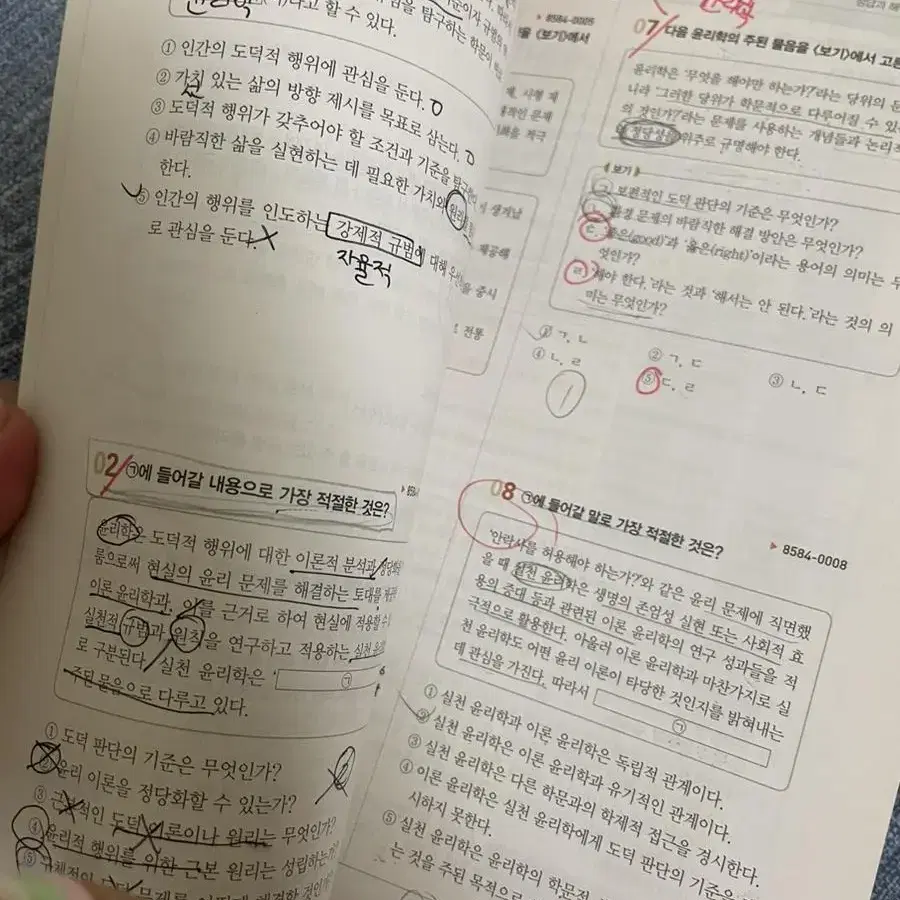 다고 할 수 있다.
① 인간의 도덕적 행위에 관심을 둔다. O
② 가치 있는 삶의 방향 제시를 목표로 삼는다. O
③ 도덕적 행위가 갖추어야 할 조건과 기준을
④ 바람직한 삶을 실현하는 데 필요한 가치와 원리
한다.
⑤ 인간의 행위를 인도하는 강제적 규범에 대해
로 관심을 둔다. X
자율적
02 ㉠에 들어갈 내용으로 가장 적절한 것은?
윤리학은 도덕적 행위에 대한 이론적 분석과
룸으로써 현실의 윤리 문제를 해결하는 토대를
이론 윤리학과, 이를 근거로 하여 현실에 적용할 수
실천적 규범과 원칙을 연구하고 적용하는 실천
로 구분된다. 실천 윤리학은 ' ㉠
주된 물음으로 다루고 있다.
① 도덕 판단의 기준은 무엇인가?
② 윤리 이론을 정당화할 수 있는가?
③ 근본적인 도덕 이론이나 원리는 무엇인가?
④ 윤리적 행위를 위한 근본 원리는 성립하는가
⑤ 구체적인
▸ 8584-0005
을 <보기>에서
07 다음 윤리학의 주된 물음을 <보기>에서 고른
윤리학은 '무엇을 해야만 하는가?'라는 당위의
니라 '그러한 당위가 학문적으로 다루어질 수
의 것인가?'라는 문제를 사용하는 개념들과 논리적
정당성을 위주로 규명해야 한다.
< 보기 >
ㄱ. 보편적인 도덕 판단의 기준은 무엇인가?
ㄴ. 환경 문제의 바람직한 해결 방안은 무엇인가?
ㄷ. '좋은(good)'과 '옳은(right)'이라는 용어의 의미는 무
엇인가?
ㄹ. '해야 한다.'라는 것과 '해서는 안 된다.'라는 것의 의
미는 무엇인가?
① ㄱ, ㄴ
② ㄱ, ㄷ
③ ㄴ, ㄷ
④ ㄴ, ㄹ
⑤ ㄷ, ㄹ
1
08 ㉠에 들어갈 말로 가장 적절한 것은?
▸ 8584-0008
'안락사를 허용해야 하는가?'와 같은 윤리 문제에 직면했
을 때 실천 윤리학은 생명의 존엄성 실현 또는 사회적 효
용의 증대 등과 관련된 이론 윤리학의 연구 성과들을 적
극적으로 활용한다. 아울러 이론 윤리학과 마찬가지로 실
천 윤리학도 어떤 윤리 이론이 타당한 것인지를 밝혀내는
데 관심을 가진다. 따라서 ㉠
① 실천 윤리학과 이론 윤리학은 독립적 관계이다.
② 실천 윤리학은 이론 윤리학과 유기적인 관계이다.
③ 실천 윤리학은 다른 학문과의 학제적 접근을 경시한다.
④ 이론 윤리학은 실천 윤리학에게 도덕 판단의 기준을
시하지 못한다.
⑤ 실천 윤리학은 윤리학의 학문적
는 것을 주된 목적으로